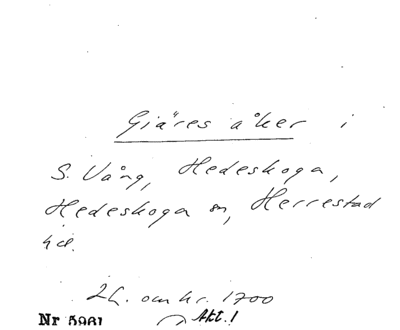 Giäres åker i
S. Vång, Hedeskoga,
Hedeskoga sn, Herrestad
hd.
omkr. 1700
Nr 5961 Akt. 1